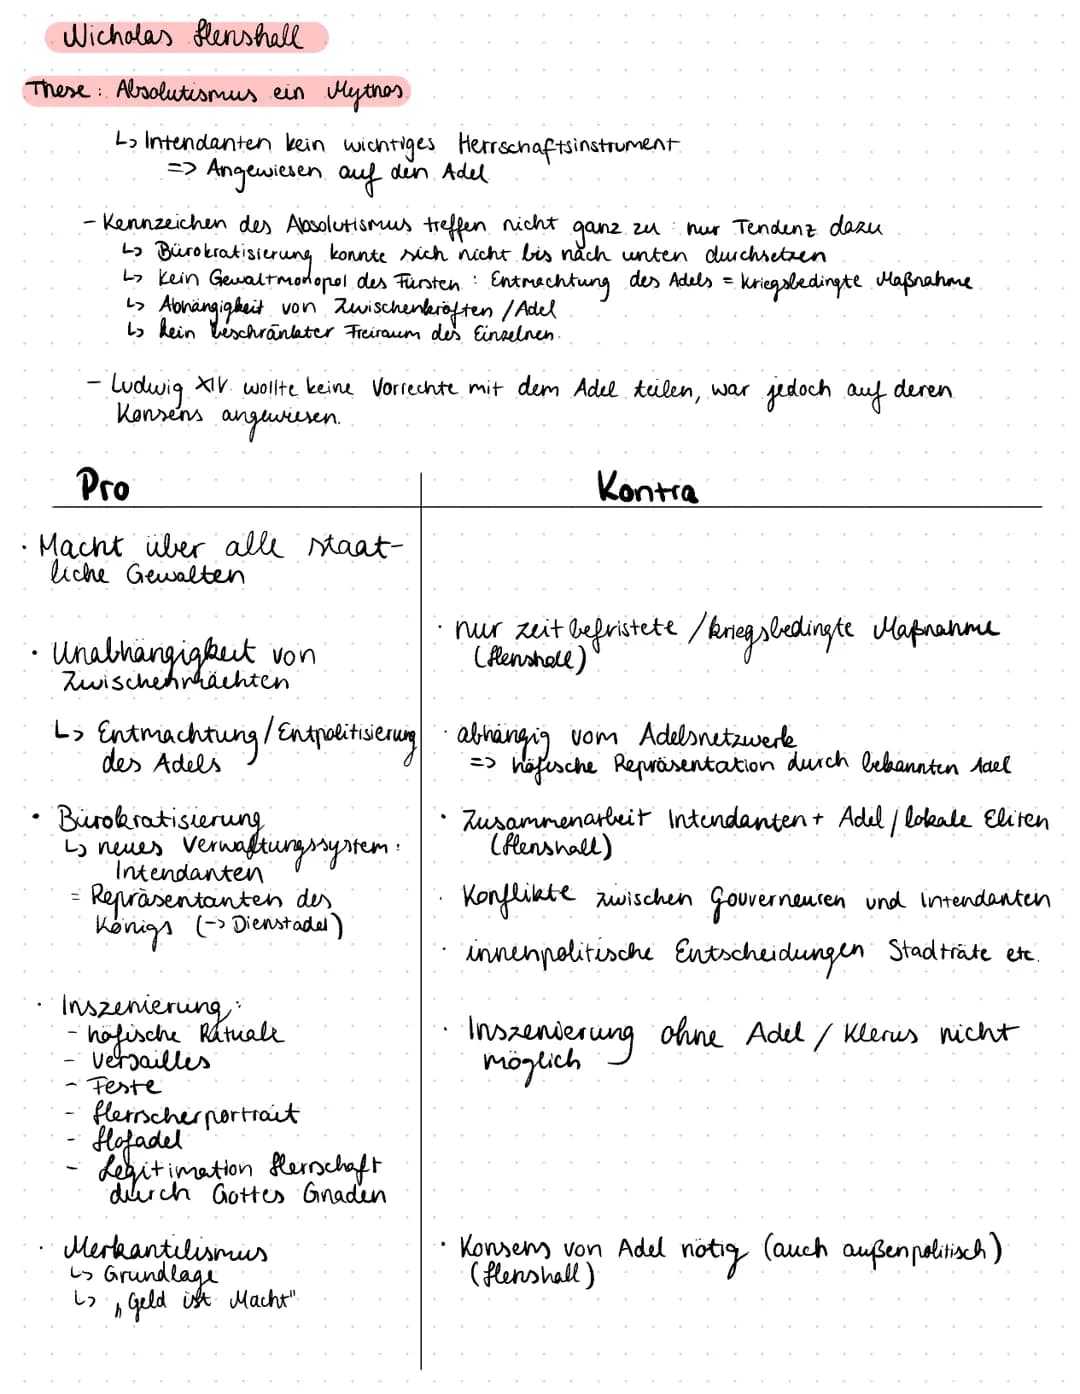 Nicholas Henshall
These: Absolutismus ein Mythos
↳ Intendanten kein wichtiges Herrschaftsinstrument
=> Angewiesen auf den Adel
- Kennzeichen des Absolutismus treffen nicht ganz zu : nur Tendenz dazu
↳ Bürokratisierung konnte sich nicht bis nach unten durchsetzen
↳ Kein Gewaltmonopol des Fürsten : Entmachtung des Adels = kriegsbedingte Maßnahme
↳ Abhängigkeit von Zwischenkräften / Adel
↳ kein beschränkter Freiraum des Einzelnen.
- Ludwig XIV. wollte keine Vorrechte mit dem Adel teilen, war jedoch auf deren
Konsens angewiesen.
Pro
Kontra
· Macht über alle staat-
liche Gewalten
· Unabhängigkeit von
Zwischenmächten
· nur zeitbefristete / kriegsbedingte Maßnahme
(Henshall)
↳ Entmachtung / Entpolitisierung
des Adels
· abhängig vom Adelsnetzwerk
=> höfische Repräsentation durch bekannten Adel
• Bürokratisierung
↳ neues Verwaltungssystem :
Intendanten
= Repräsentanten des
Königs (-> Dienstadel)
· Zusammenarbeit Intendanten + Adel / lokale Eliten
(Henshall)
· Konflikte zwischen Gouverneuren und Intendanten
· innenpolitische Entscheidungen Stadträte etc.
· Inszenierung :
- höfische Rituale
- Versailles
- Feste
- Herrscherportrait
- Hofadel
- Legitimation Herrschaft
durch Gottes Gnaden
· Inszenierung ohne Adel / Klerus nicht
möglich
· Merkantilismus
↳ Grundlage
↳ „Geld ist Macht"
· Konsens von Adel nötig (auch außenpolitisch)
(Henshall)